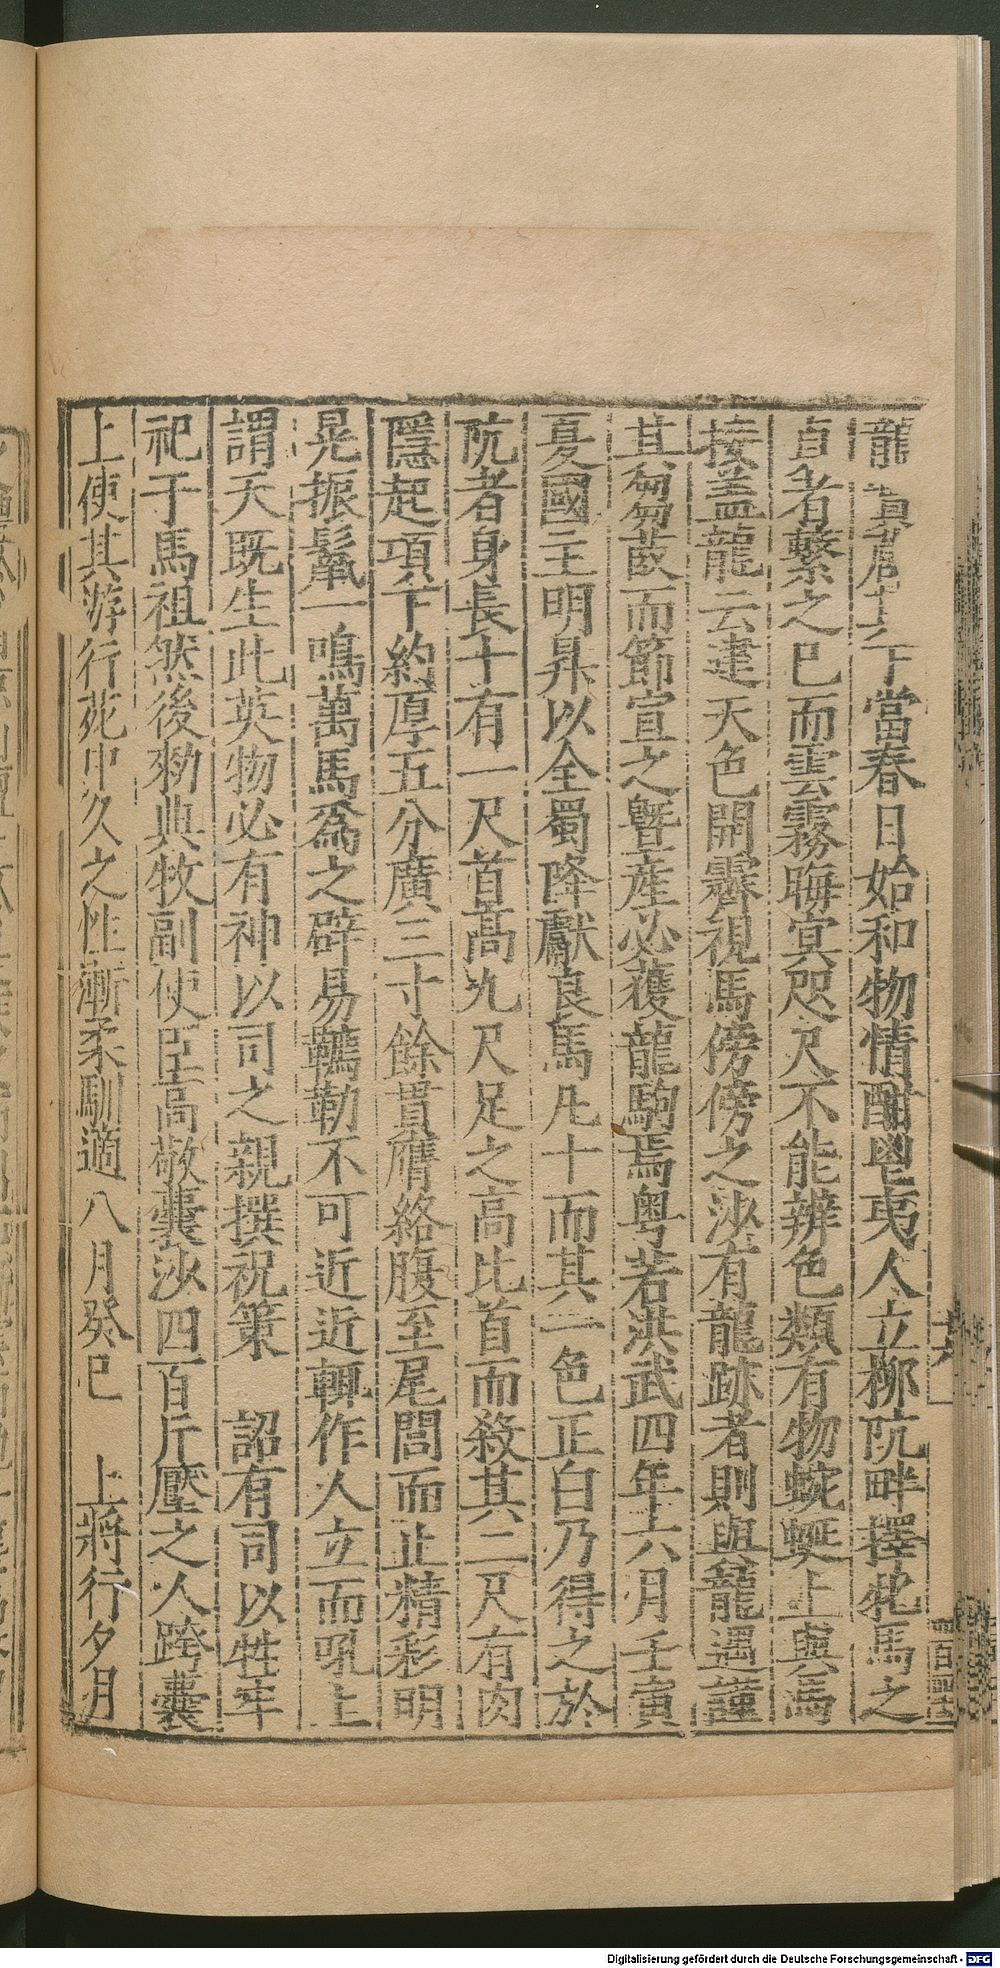 龍 當春日始和物情酣鬯夷人立柳阬畔擇牝馬之
貞者繫之已而雲霧晦冥咫尺不能辨色類有物蜿蜒上與馬
接蓋龍云逮天色開霽視馬傍傍之沙有龍跡者則與龍遇謹
其芻菽而節宣之曁產必獲龍駒焉粵若洪武四年六月壬寅
夏國主明昇以全蜀降獻良馬凡十而其一色正白乃得之於
阬者身長十有一尺首高九尺足之高比首而殺其二尺有肉
隱起項下約厚五分廣三寸餘貫膺絡腹至尾閭而止精彩明
晃振鬣一鳴萬馬爲之辟易鞿勒不可近近輒作人立而吼上
謂天既生此英物必有神以司之親撰祝策 詔有司以牲牢
祀于馬祖然後勑典牧副使臣高敬囊沙四百斤壓之人跨囊
上使其游行苑中久之性漸柔馴適八月癸巳 上將行夕月